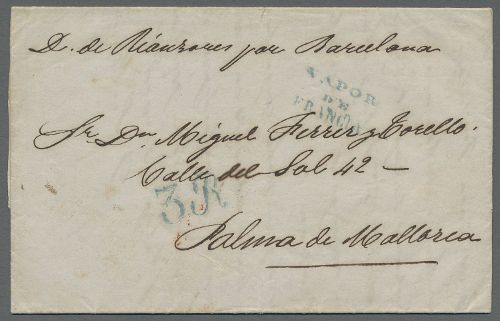 D. de Riánzares por Barcelona
VAPOR
DE
FRANCIA
Sr. Dn. Miguel Ferrer y Torello.
Calle del Sol 42 —
3 R
Palma de Mallorca